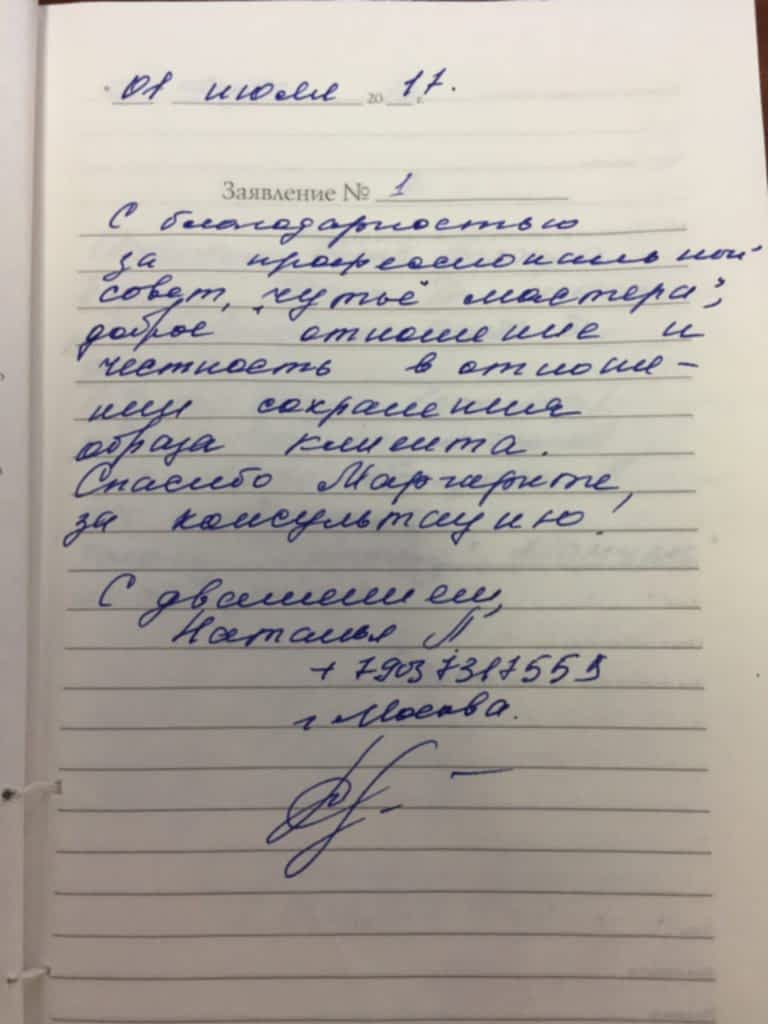 01 июля 2017 г.
Заявление № 1
С благодарностью
за профессиональный
совет, "чутьё мастера",
доброе отношение и
честность в отноше-
нии сохранения
образа клиента.
Спасибо Маргарите,
за консультацию!
С уважением,
Наталья Л.
+ 79037317559
г. Москва.